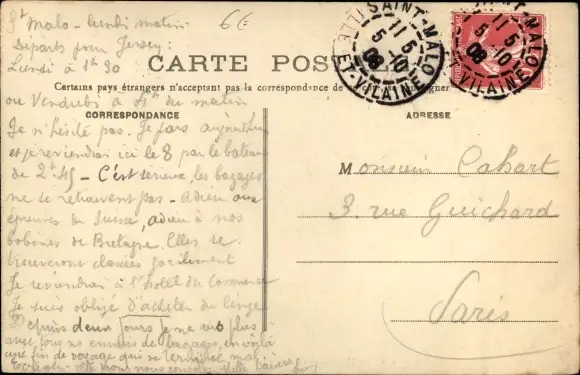 St Malo - lundi matin
6E
Departs pour Jersey:
Lundi à 1h30
CARTE POSTALE
Certains pays étrangers n'acceptent pas la correspondance de
ou Vendredi à du matin
CORRESPONDANCE
ADRESSE
SAINT-MALO
ILLE-ET-VILAINE
11 5
5-10
08
SAINT-MALO
VILAINE
11 5
5-10
08
Je n'hésite pas. Je pars aujourd'hui
et je reviendrai ici le 8 par le bateau
de 2h45 - C'est serieux, les bagages
ne se retrouvent pas - Adieu aux
épreuves de Suisse, adieu à nos
bobines de Bretagne. Elles se
trouveront classées facilement
Je reviendrai à l'hôtel du Commerce
Je suis obligé d'acheter du linge
Depuis deux jours je ne vis plus
avec tous ces ennuis de bagages, en voilà
une fin de voyage qui se termine mal.
Monsieur Cahart
3, rue Guichard
Paris